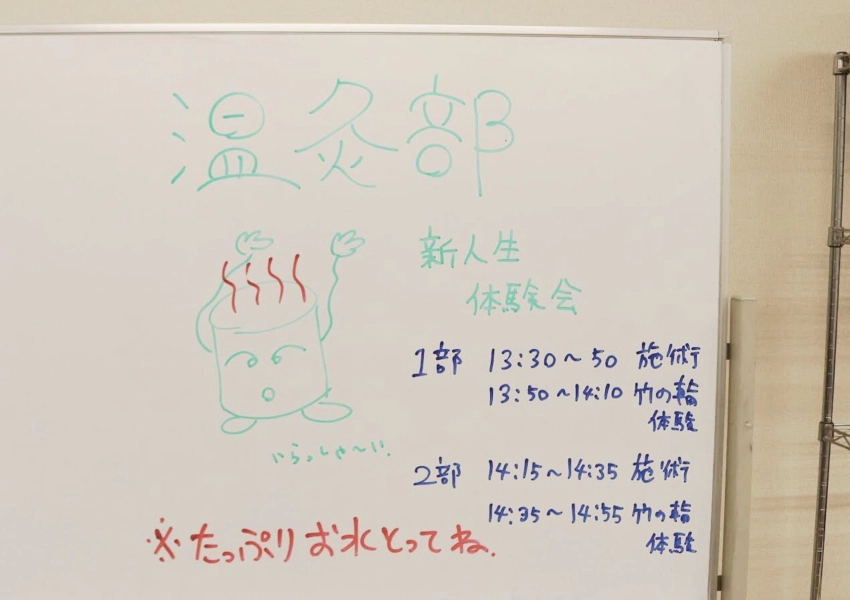 温灸部
新人生
体験会
1部 13:30～50 施術
13:50～14:10 竹の輪
体験
いらっしゃ～い.
2部 14:15～14:35 施術
14:35～14:55 竹の輪
体験
※たっぷりお水とってね.